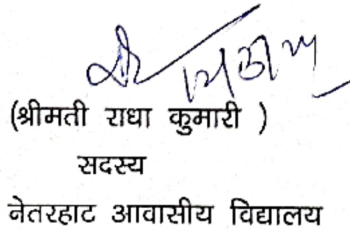 (श्रीमती राधा कुमारी )
सदस्य
नेतरहाट आवासीय विद्यालय